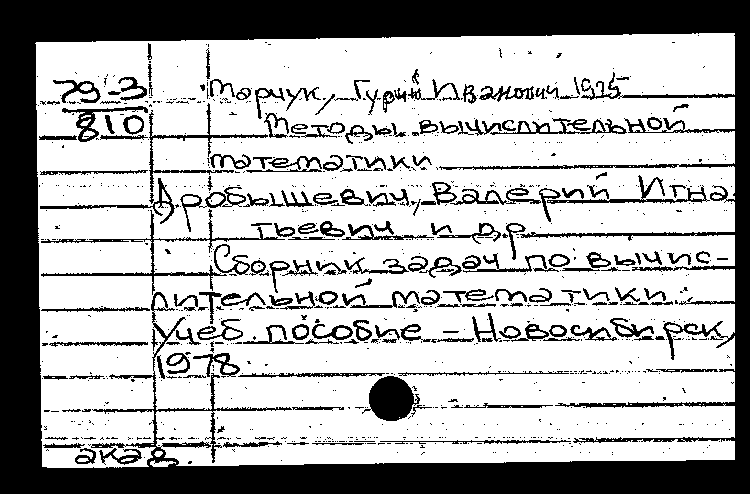 79-3 Марчук, Гурий Иванович 1925
810 Методы вычислительной
математики
Дробышевич, Валерий Игна
тьевич и др.
Сборник задач по вычис-
лительной математики :
Учеб. пособие – Новосибирск,
1978
акад.